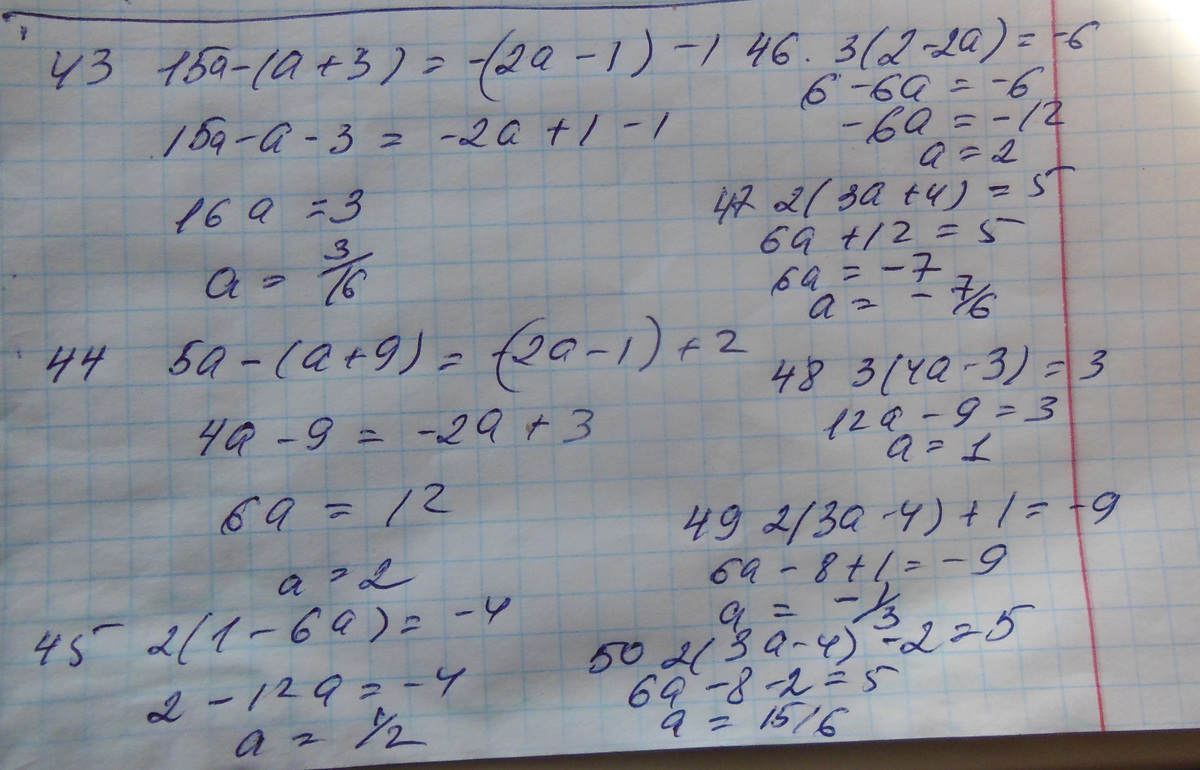 43 15a-(a+3) = -(2a-1)-1
15a-a-3 = -2a+1-1
16a = 3
a = 3/16
44 5a-(a+9) = -(2a-1)+2
4a-9 = -2a+3
6a = 12
a = 2
45 2(1-6a) = -4
2-12a = -4
a = 1/2
46. 3(2-2a) = -6
6-6a = -6
-6a = -12
a = 2
47 2(3a+4) = 5
6a+12 = 5
6a = -7
a = -7/6
48 3(4a-3) = 3
12a-9 = 3
a = 1
49 2(3a-4)+1 = -9
6a-8+1 = -9
a = -1/3
50 2(3a-4)-2 = 5
6a-8-2 = 5
a = 15/6